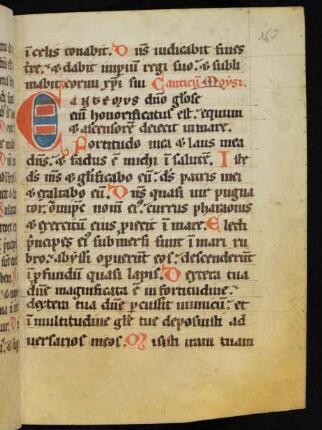 160
i celis tonabit. Dn̄s iudicabit fines
t̄re. ⁊ dabit imp̄iuꝫ regi suo. ⁊ subli
mabit cornu xp̄i sui Canticū Moysi.
Cantemus dn̄o glose
eni honorificatus est. equum
⁊ ascensorē deiecit in mare.
Fortitudo mea ⁊ laus mea
dn̄s. ⁊ factus ē michi ī salutē. Iste
ds̄ ms̄ ⁊ glificabo eū. ds̄ patris mei
⁊ exaltabo eū. Dn̄s quasi uir pugna
tor. om̄ips̄ nom̄ ei᷒. currus pharaonis
⁊ exercitū eius proiecit ī mare. Electi
p̄ncipes ei᷒ submersi sunt ī mari ru
bro. abyssi operuerūt eos. descenderūt
ī p̄fundū quasi lapis. Dextera tua
dn̄e magnificata ē in fortitudine.
dextera tua dn̄e p̄cussit inimicū. ⁊
ī multitudine gle tue deposuisti ad
uersarios meos. Misisti iram tuam